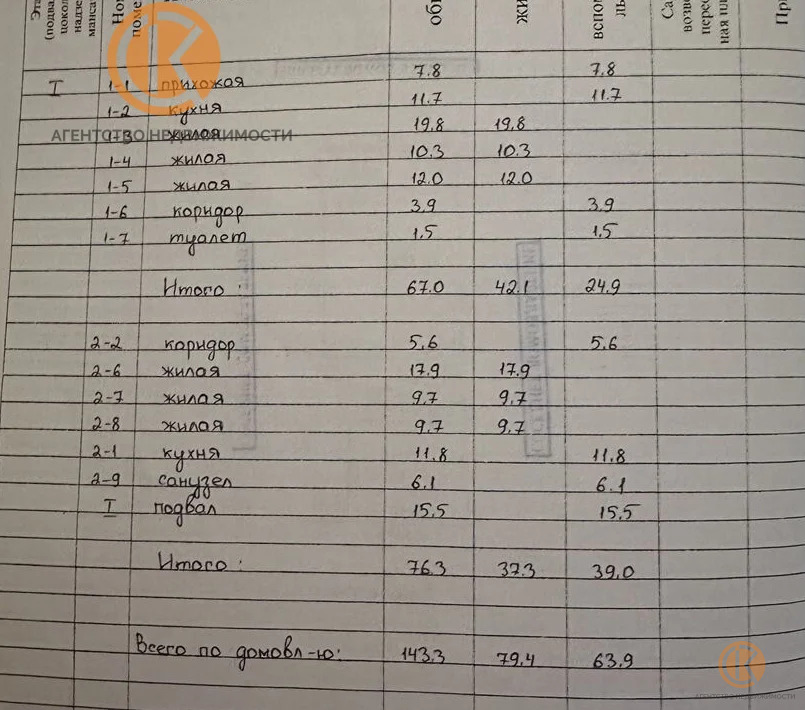 I 1-1 прихожая 7.8 7.8
1-2 кухня 11.7 11.7
АГЕНТСТВО НЕДВИЖИМОСТИ
1-3 жилая 19.8 19.8
1-4 жилая 10.3 10.3
1-5 жилая 12.0 12.0
1-6 коридор 3.9 3.9
1-7 туалет 1.5 1.5
Итого: 67.0 42.1 24.9
2-2 коридор 5.6 5.6
2-6 жилая 17.9 17.9
2-7 жилая 9.7 9.7
2-8 жилая 9.7 9.7
2-1 кухня 11.8 11.8
2-9 санузел 6.1 6.1
I подвал 15.5 15.5
Итого: 76.3 37.3 39.0
Всего по домовл-ю: 143.3 79.4 63.9
АГЕНТСТВО НЕДВИЖИМОСТИ